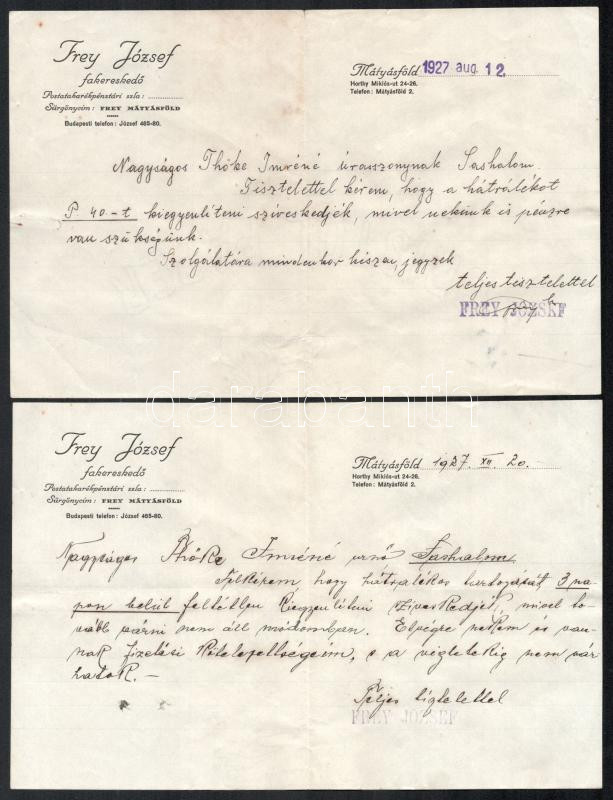 Frey József
fakereskedő
Postatakarékpénztári szla: ............
Sürgönycim: FREY MÁTYÁSFÖLD
Budapesti telefon: József 465-80.
Mátyásföld 1927 aug. 12.
Horthy Miklós-ut 24-26.
Telefon: Mátyásföld 2.
Nagyságos Thőke Imréné úrasszonynak Sashalom.
Tisztelettel kérem, hogy a hátrálékot
P. 40.-t kiegyenlíteni szíveskedjék, mivel nekünk is pénzre
van szükségünk.
Szolgálatára mindenkor készen, jegyzek
teljes tisztelettel
FREY JÓZSEF
darabanth
Frey József
fakereskedő
Postatakarékpénztári szla: ............
Sürgönycim: FREY MÁTYÁSFÖLD
Budapesti telefon: József 465-80.
Mátyásföld 1927. XII. 20.-
Horthy Miklós-ut 24-26.
Telefon: Mátyásföld 2.
Nagyságos Thőke Imréné urnő Sashalom
Felkérem hogy hátralékos tartozását 3 na-
pon belül feltétlen kiegyenlíteni szíveskedjék, mivel to-
vább várni nem áll módomban. Elvégre nekem is van-
nak fizetési kötelezettségeim, s a végletekig nem vár
hatok.-
Teljes tisztelettel
FREY JÓZSEF